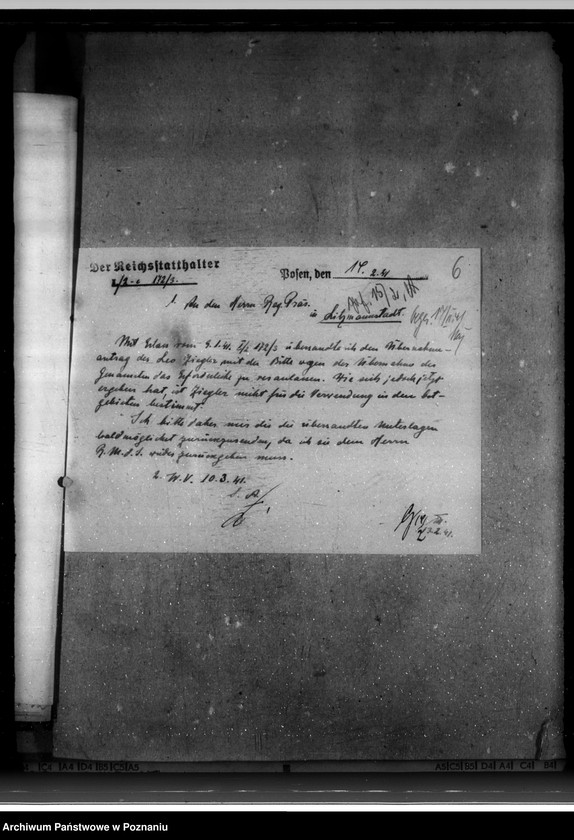 6
Der Reichsstatthalter
I/2-c 172/3.
Posen, den 14. 2.41
1. An den Herrn Reg. Präs.
in Litzmannstadt.
Mit Erlass vom 9.1.41. I/2 172/3 übersandte ich den Übernahme-
antrag des Leo Ziegler mit der Bitte wegen der Übernahme des
Genannten das Erforderliche zu veranlassen. Wie sich jedoch jetzt
ergeben hat, ist Ziegler nicht für die Verwendung in den Ost-
gebieten bestimmt.
Ich bitte daher mir die übersandten Unterlagen
baldmöglichst zurückzusenden, da ich sie dem Herrn
R.M.d.I. wieder zurückgeben muss.
2. W.V. 10.3.41.
I. A.
Archiwum Państwowe w Poznaniu